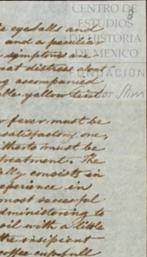 CENTRO DE
ESTUDIOS
DE HISTORIA
DE MEXICO
FUNDACION
eyeballs and
and a peculiar
symptoms are
distress about
accompanied
yellow tint
Slim
fever must be
satisfactory one,
must be
treatment. The
consists in
experience in
most successful
administering to
oil with a little
the incipient
coffee cupfull